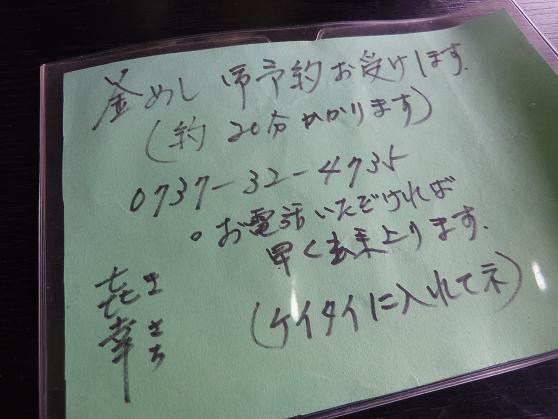 釜めし 御予約お受けします。
(約20分かかります)
0737-32-4735
。お電話いただければ
早く出来上ります。
(ケイタイに入れてネ)
㐂幸
きさち